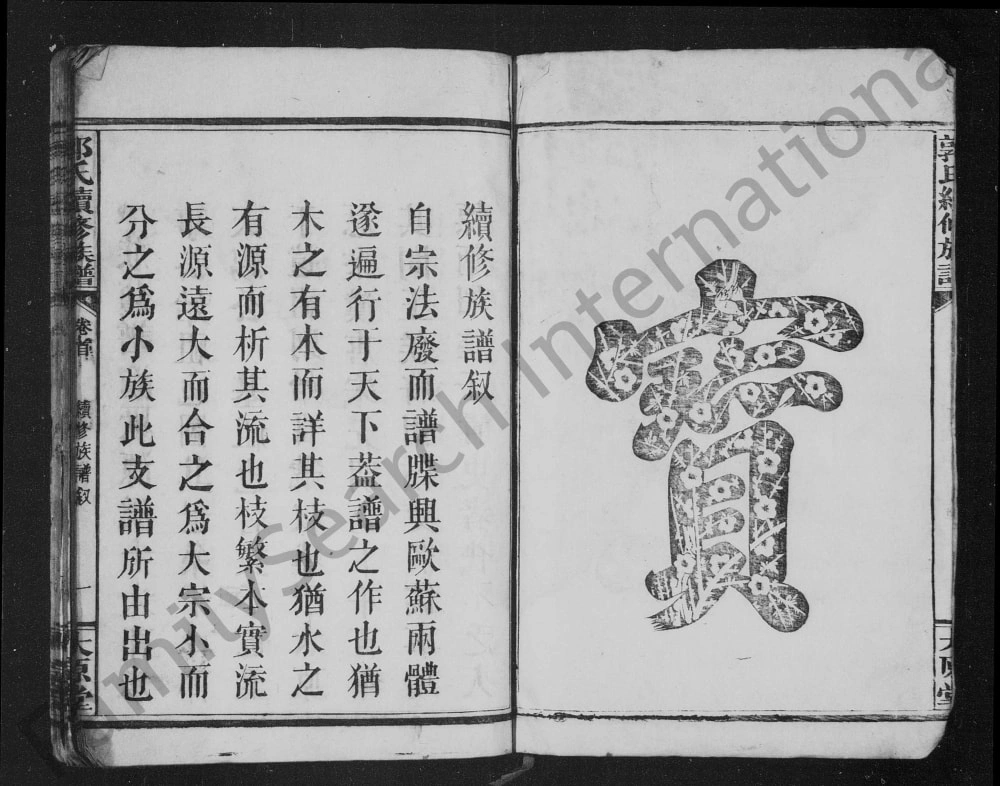 郭氏續修族譜
太原堂
寶
續修族譜叙
自宗法廢而譜牒興歐蘇兩體
遂遍行于天下葢譜之作也猶
木之有本而詳其枝也猶水之
有源而析其流也枝繁本實流
長源遠大而合之爲大宗小而
分之爲小族此支譜所由出也
郭氏續修族譜
卷首
續修族譜叙
一
太原堂
FamilySearch International